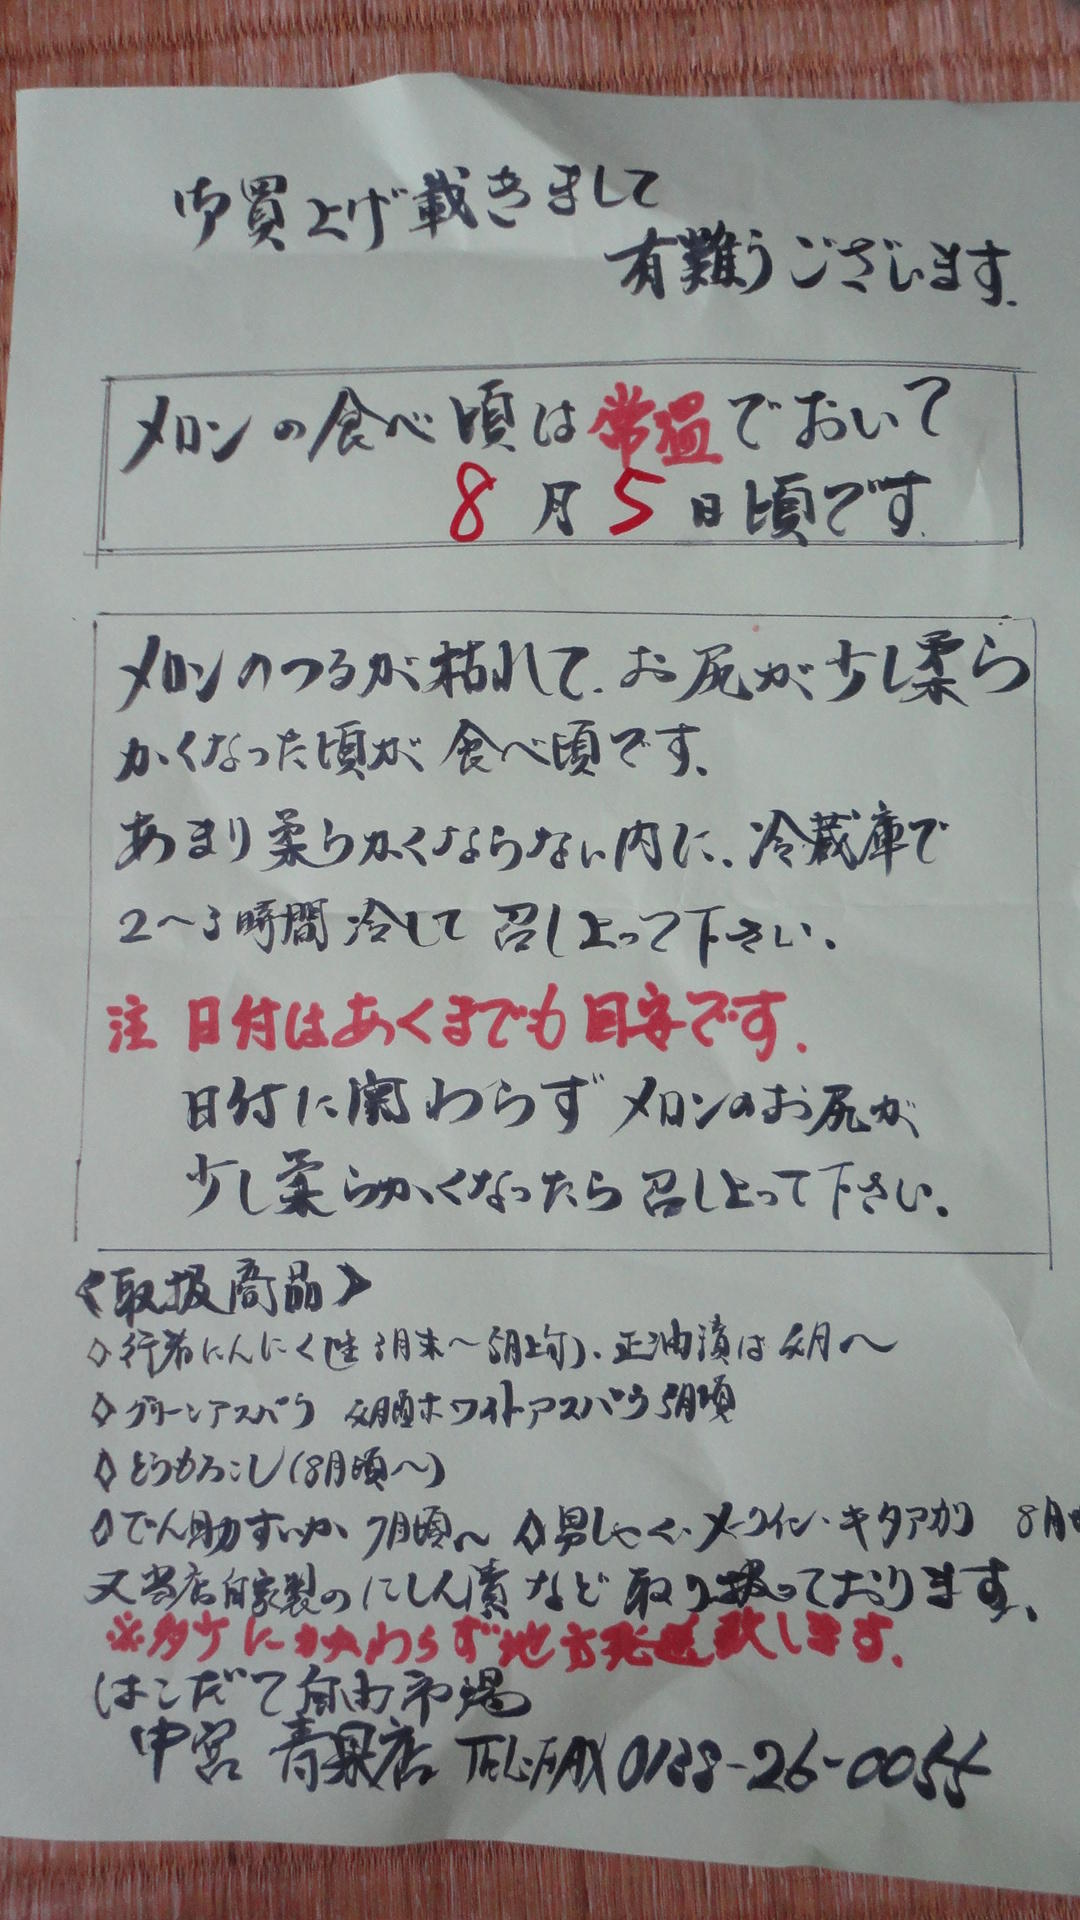 御買上げ載きまして
有難うございます.
メロンの食べ頃は常温でおいて
8月5日頃です.
メロンのつるが枯れて、お尻が少し柔ら
かくなった頃が食べ頃です、
あまり柔らかくならない内に、冷蔵庫で
2〜3時間冷して召し上って下さい.
注 日付はあくまでも目安です.
日付に関わらずメロンのお尻が
少し柔らかくなったら召し上って下さい.
<取扱商品>
◇行者にんにく(生3月末〜5月上旬)、正油漬は4月〜
◇グリーンアスパラ 4月頃ホワイトアスパラ5月頃
◇とうもろこし(8月頃〜)
◇でん助すいか 7月頃〜 ◇男しゃく・メークイン・キタアカリ 8月
又当店自家製のにしん漬など取り扱っております、
※多少にかかわらず地方発送致します.
はこだて自由市場
中宮青果店 TEL・FAX 0138-26-0055